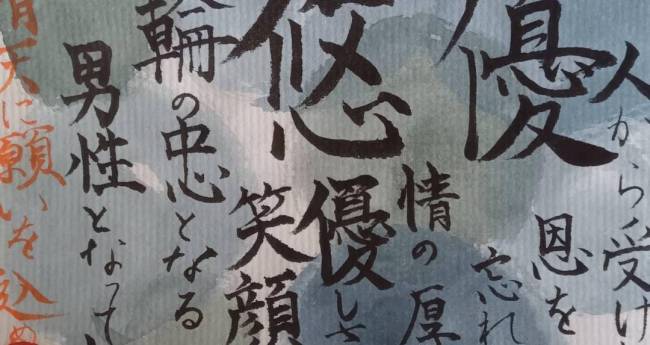 人から受け
恩を
忘れ
優
情の厚
優しさ
悠
笑顔
輪の中心となる
男性となって
青天に願いを込め